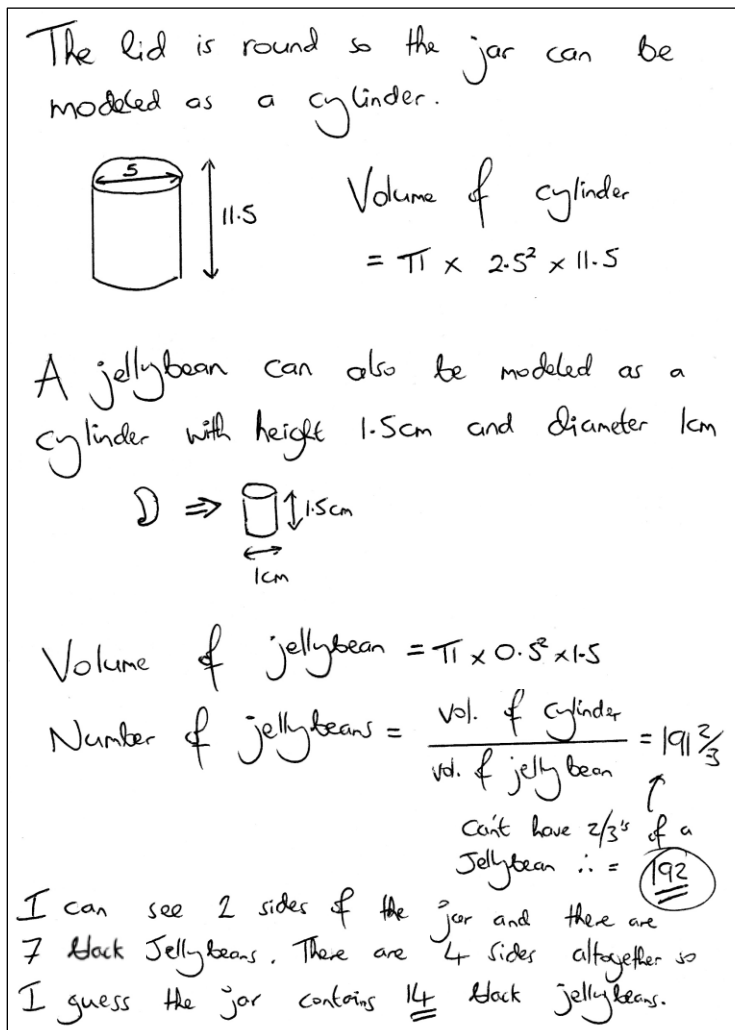 The lid is round so the jar can be
modeled as a cylinder.
5
11.5
Volume of cylinder
= π × 2.5² × 11.5
A jellybean can also be modeled as a
cylinder with height 1.5cm and diameter 1cm
⇒
1.5cm
1cm
Volume of jellybean = π × 0.5² × 1.5
Number of jellybeans = vol. of cylinder / vol. of jellybean = 191 2/3
Can't have 2/3's of a
Jellybean ∴ = 192
I can see 2 sides of the jar and there are
7 black Jellybeans. There are 4 sides altogether so
I guess the jar contains 14 black jellybeans.